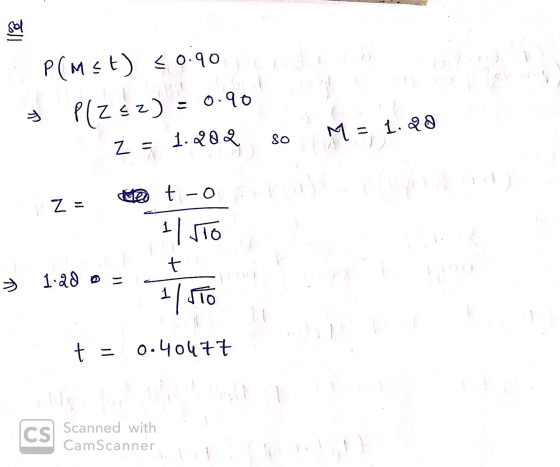 sol
P(M ≤ t) ≤ 0.90
⇒ P(Z ≤ z) = 0.90
Z = 1.282 so M = 1.28
Z = t - 0
1/√10
⇒ 1.28 = t
1/√10
t = 0.40477
CS Scanned with
CamScanner